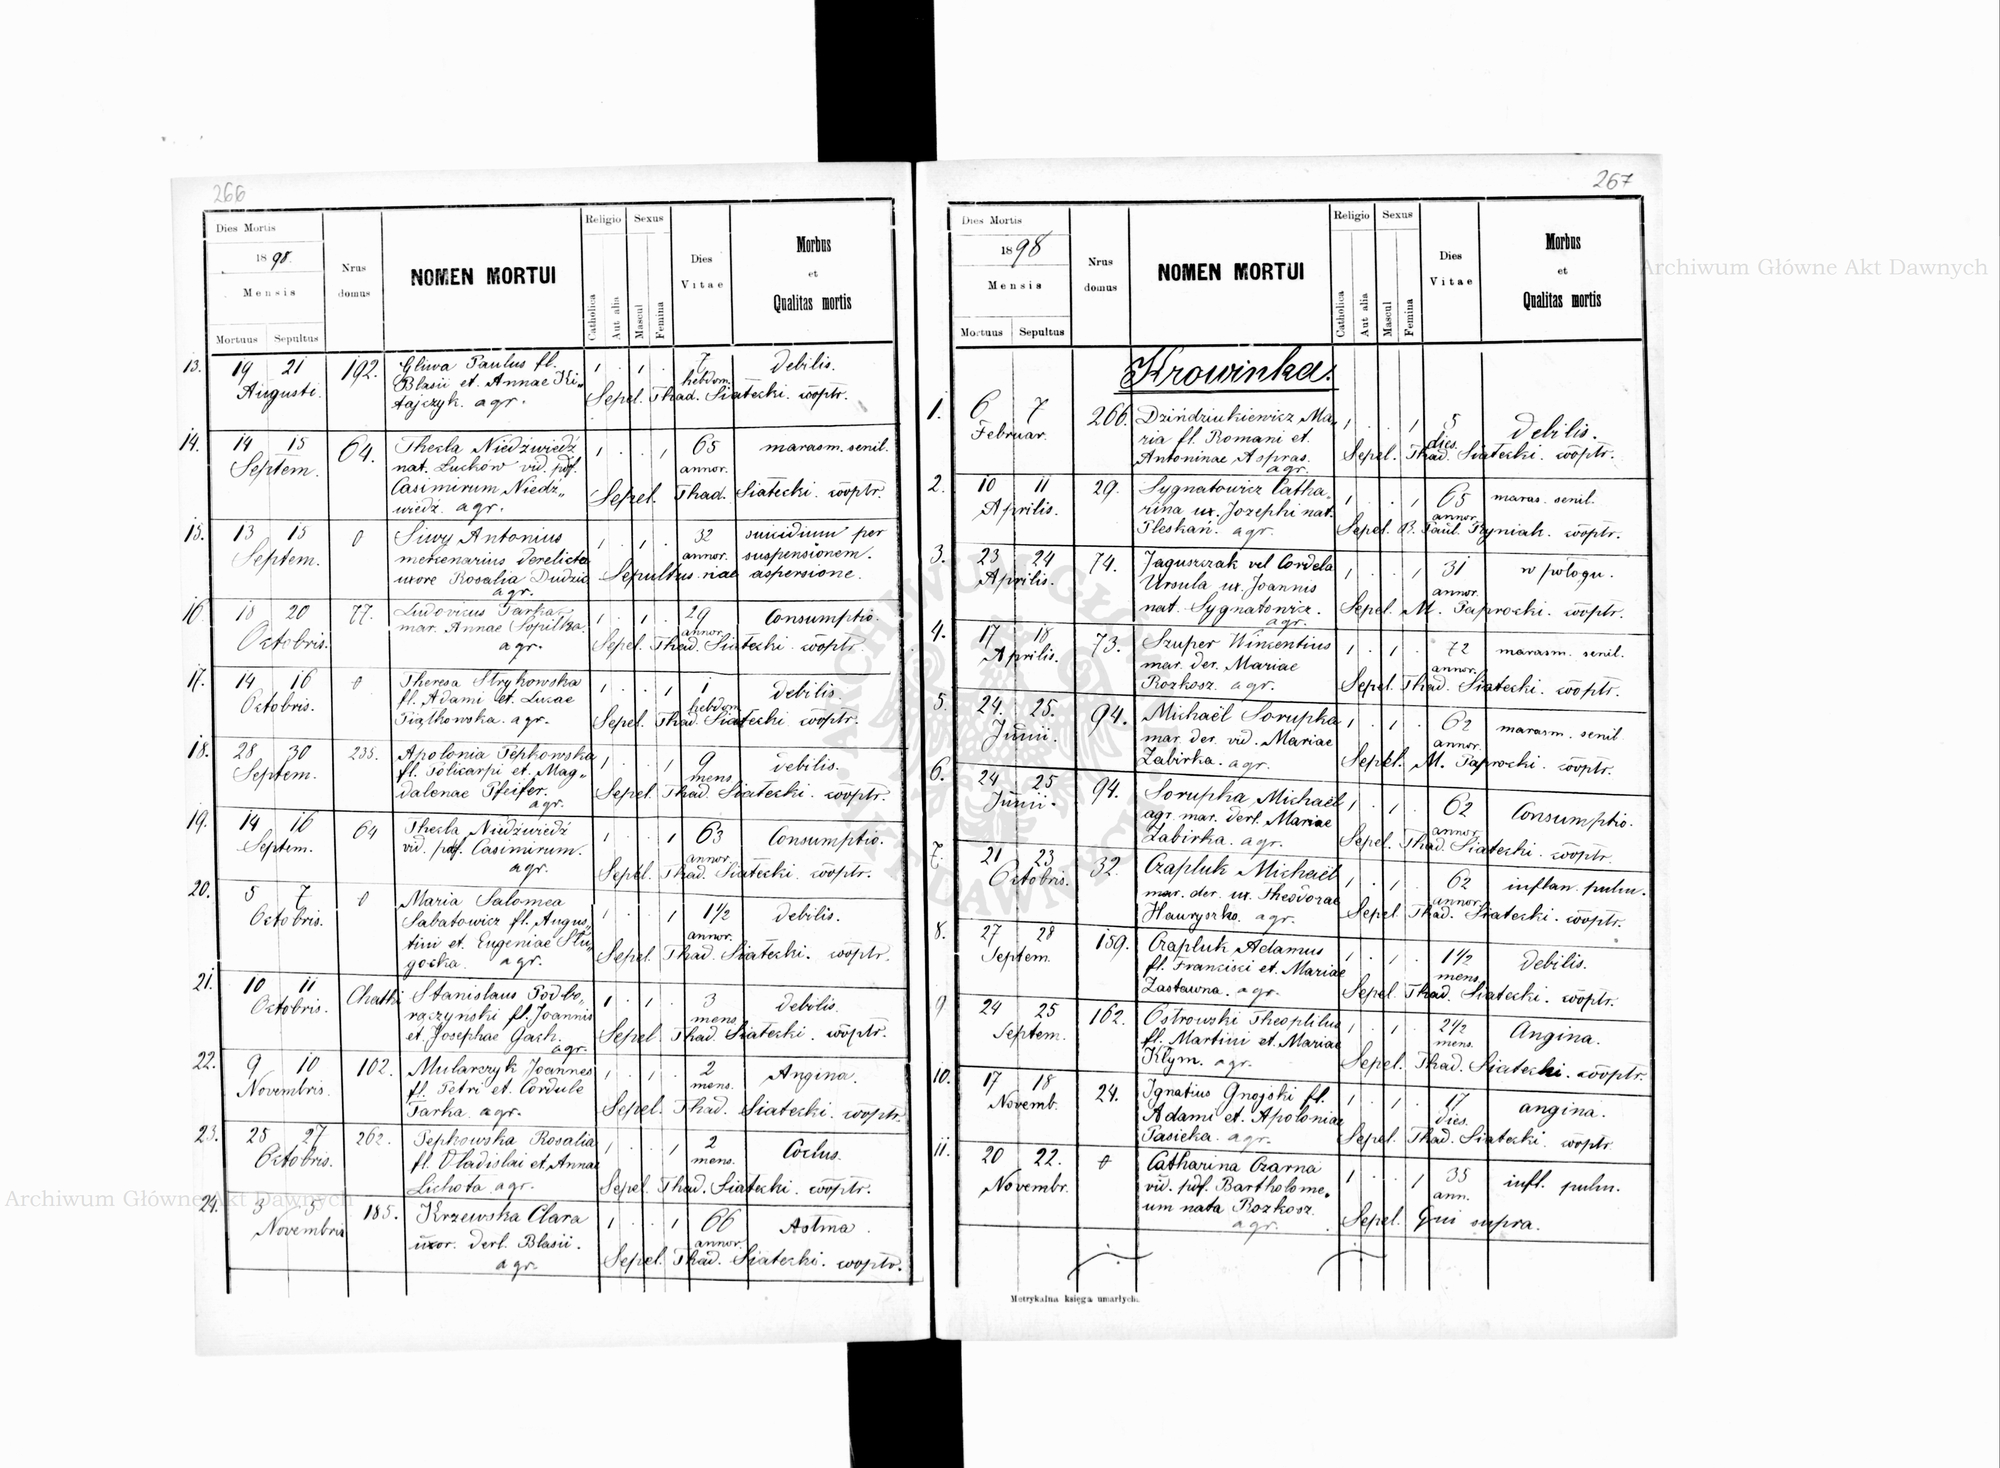 266
Dies Mortis
1898.
Mensis
Mortuus Sepultus
Nrus domus
NOMEN MORTUI
Religio
Catholica
Aut alia
Sexus
Mascul
Femina
Dies Vitae
Morbus
et
Qualitas mortis
13. 19 21 192. Gliwa Paulus fl. 1 . 1 . 7 debilis.
Augusti. Blasii et Annae Ki„ hebdom.
tajczyk. agr. Sepel. Thad. Siatecki. cooptr.
14. 14 15 64. Thecla Niedźwiedź 1 . . 1 65 marasm. senil.
Septem. nat. Luchów vid. pdf. annor.
Casimirum Niedź„ Sepel. Thad. Siatecki. cooptr.
wiedź. agr.
15. 13 15 0 Siwy Antonius 1 . 1 . 32 suicidium per
Septem. mercenarius derelicta annor. suspensionem.
uxore Rosalia Dudzic Sepultus aspersione.
agr.
16 18 20 77. Ludovicus Tarka 1 . 1 . 29 Consumptio.
Octobris. mar. Annae Sopilka. annor.
agr. Sepel. Thad. Siatecki. cooptr.
17. 14 16 0 Theresa Strykowska 1 . . 1 1 debilis.
Octobris. fl. Adami et Lucae hebdom
Piątkowska. agr. Sepel. Thad. Siatecki cooptr.
18. 28 30 235. Apolonia Pepkowska 1 . . 1 9 debilis.
Septem. fl. Policarpi et Mag„ mens.
dalenae Pfeifer. Sepel. Thad. Siatecki. cooptr.
agr.
19. 14 16 64 Thecla Niedźwiedź 1 . . 1 63 Consumptio.
Septem. vid. pdf. Casimirum. annor.
agr. Sepel. Thad. Siatecki. cooptr.
20. 5 7 0 Maria Salomea 1 . . 1 1½ debilis.
Octobris. Sabatowicz fl. Augus„ annor.
tini et Eugeniae Stu„ Sepel. Thad. Siatecki. cooptr.
gocka. agr.
21. 10 11 Chatki Stanislaus Podbo„ 1 . 1 . 3 debilis.
Octobris. raczynski fl. Joannis mens.
et Josephae Gach. Sepel. Thad. Siatecki. cooptr.
agr.
22. 9 10 102. Mularczyk Joannes 1 . 1 . 2 Angina.
Novembris. fl. Petri et Cordule mens.
Tarka. agr. Sepel. Thad. Siatecki. cooptr.
23. 25 27 262. Pepkowska Rosalia 1 . . 1 2
Octobris. fl. Vladislai et Annae mens.
Lichota. agr. Sepel. Thad. Siatecki. cooptr.
24. 3 5 185. Krzewska Clara 1 . . 1 66 Astma.
Novembris uxor. derl. Blasii. annor.
agr. Sepel. Thad. Siatecki. cooptr.
267
Dies Mortis
1898
Mensis
Mortuus Sepultus
Nrus domus
NOMEN MORTUI
Religio
Catholica
Aut alia
Sexus
Mascul
Femina
Dies Vitae
Morbus
et
Qualitas mortis
Krowinka.
1. 6 7 266. Dzińdziukiewicz Ma„ 1 . . 1 5 debilis.
Februar. ria fl. Romani et dies.
Antoninae Aspras. Sepel. Thad. Siatecki. cooptr.
agr.
2. 10 11 29. Sygnatowicz Catha„ 1 . . 1 65 maras. senil.
Aprilis. rina ux. Jozephi nat. annor.
Pleskań. agr. Sepel. B. Paul. Pryniak. cooptr.
3. 23 24 74. Jaguszczak vel Cordela 1 . . 1 31 w połogu.
Aprilis. Ursula ux. Joannis annor.
nat. Sygnatowicz. Sepel. M. Paprocki. cooptr.
agr.
4. 17 18 73. Szuper Wincentius 1 . 1 . 72 marasm. senil.
Aprilis. mar. der. Mariae annor.
Rozkosz. agr. Sepel. Thad. Siatecki. cooptr.
5. 24. 25. 94. Michaël Sorupka 1 . 1 . 62 marasm. senil
Junii. mar. der. vid. Mariae annor.
Zabirka. agr. Sepel. M. Paprocki. cooptr.
6. 24 25 94. Sorupka Michaël 1 . 1 . 62 Consumptio.
Junii. agr. mar. derl. Mariae annor.
Zabirka. agr. Sepel. Thad. Siatecki. cooptr.
7. 21 23 32. Czapluk Michaël 1 . 1 . 62 inflan. pulm.
Octobris. mar. der. ux. Theodorae annor.
Hawryszko. agr. Sepel. Thad. Siatecki. cooptr.
8. 27 28 159. Czapluk Adamus 1 . 1 . 1½ debilis.
Septem. fl. Francisci et Mariae mens.
Zastawna. agr. Sepel. Thad. Siatecki. cooptr.
9 24 25 162. Ostrowski Theophilus 1 . 1 . 2½ Angina.
Septem. fl. Martini et Mariae mens.
Kłym. agr. Sepel. Thad. Siatecki. cooptr.
10. 17 18 24. Ignatius Gnojski fl. 1 . 1 . 17 angina.
Novemb. Adami et Apoloniae dies.
Pasieka. agr. Sepel. Thad. Siatecki. cooptr.
11. 20 22. 0 Catharina Czarna 1 . . 1 35 infl. pulm.
Novembr. vid. pdf. Bartholome„ ann.
um nata Rozkosz. Sepel. Qui supra.
agr.
Metrykalna księga umarłych.
Archiwum Główne Akt Dawnych
Archiwum Główne Akt Dawnych
ARCHIWUM GŁÓWNE AKT DAWNYCH